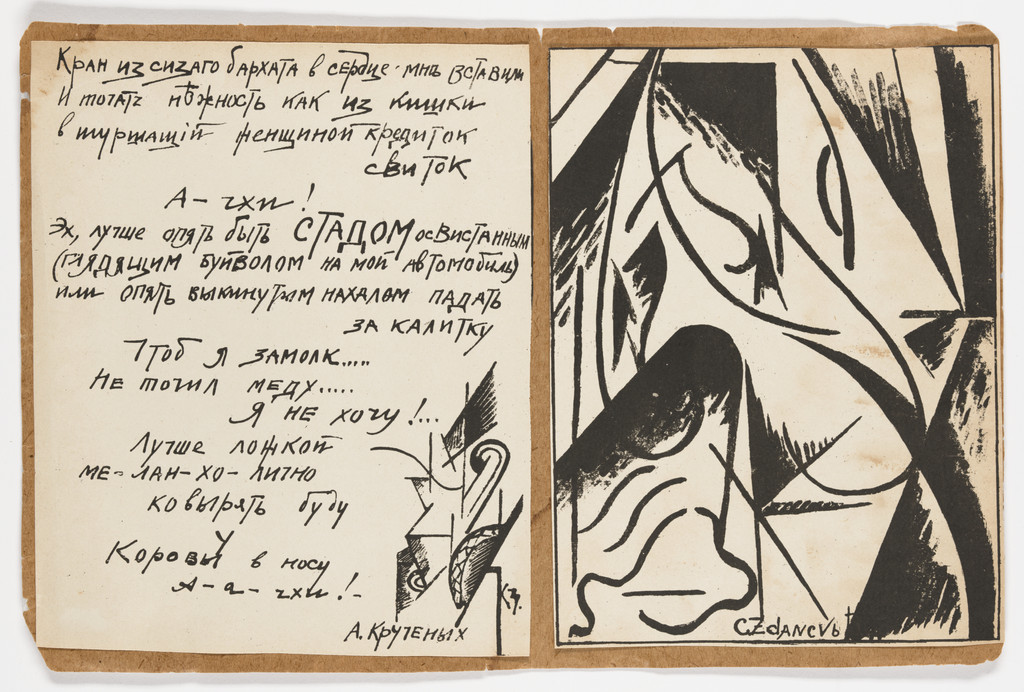 Кран из сизаго бархата в сердце мнѣ вставили
И точатъ нѣжность как из кишки
в шуршащій женщиной кредиток
свиток
А – чхи!
Эх, лучше опять быть СТАДОМ освистанным
(глядящим буйволом на мой автомобиль)
или опять выкинутым нахалом падать
за калитку
Чтоб я замолк.....
Не точил меду.....
Я не хочу!...
Лучше ложкой
ме-лан-хо-лично
ковырять буду
Коровы в носу
А-а-чхи!-
А. Крученых
КЗ.
C.ZdANEVb